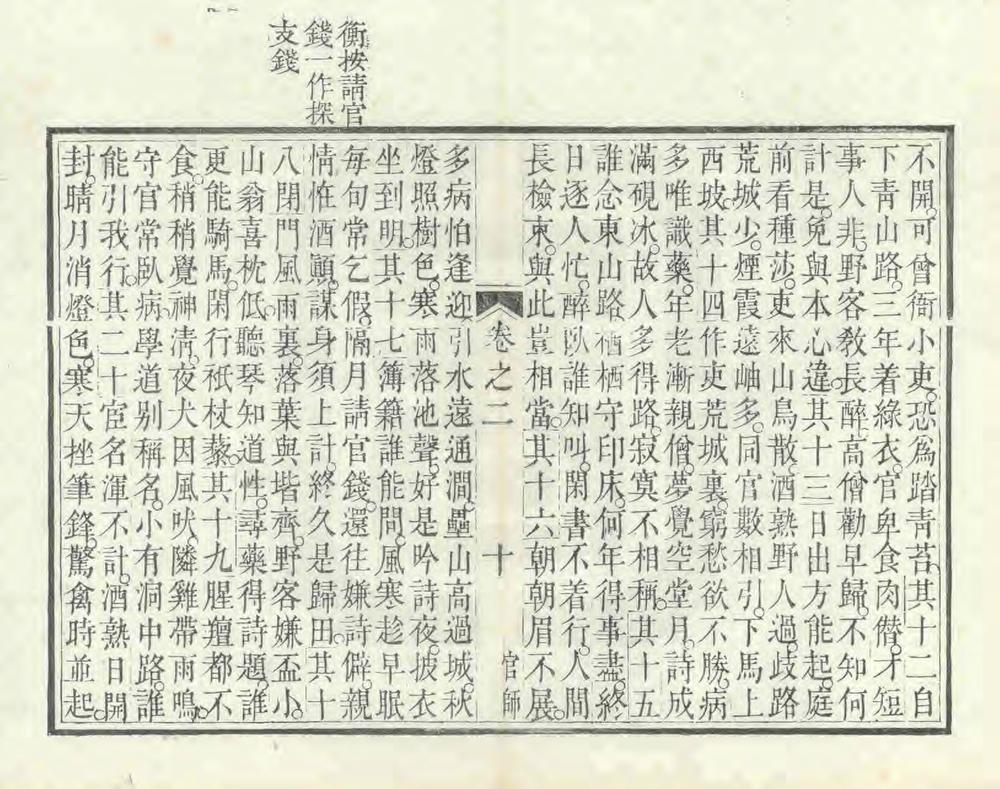 衡按請官
錢一作探
支錢
不開。可曾衙小吏。恐爲踏青苔。其十二自
下青山路。三年着綠衣。官卑食肉僭。才短
事人非。野客教長醉。高僧勸早歸。不知何
計是。免與本心違。其十三日出方能起。庭
前看種莎。吏來山鳥散。酒熟野人過。歧路
荒城少。煙霞遠岫多。同官數相引。下馬上
西坡。其十四作吏荒城裏。窮愁欲不勝。病
多唯識藥。年老漸親僧。夢覺空堂月。詩成
滿硯冰。故人多得路。寂寞不相稱。其十五
誰念東山路。栖栖守印床。何年得事盡。終
日逐人忙。醉臥誰知叫。閑書不着行。人間
長檢束。與此豈相當。其十六朝朝眉不展。
卷之二 十 官師
多病怕逢迎。引水遠通澗。壘山高過城。秋
燈照樹色。寒雨落池聲。好是吟詩夜。披衣
坐到明。其十七簿籍誰能問。風寒趁早眠
每旬常乞假。隔月請官錢。還往嫌詩僻。親
情恠酒顛。謀身須上計。終久是歸田。其十
八閉門風雨裏。落葉與堦齊。野客嫌盃小。
山翁喜枕低。聽琴知道性。尋藥得詩題。誰
更能騎馬。閑行衹杖藜。其十九腥羶都不
食。稍稍覺神清。夜犬因風吠。隣雞帶雨鳴。
守官常臥病。學道别稱名。小有洞中路。誰
能引我行。其二十宦名渾不計。酒熟日開
封。晴月消燈色。寒天挫筆鋒。驚禽時並起。